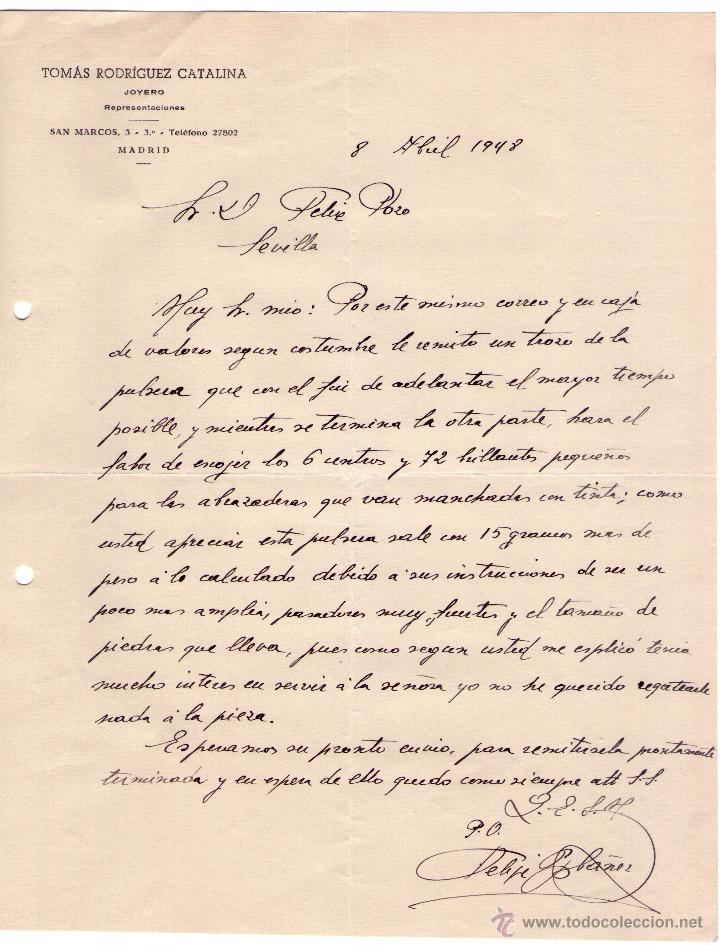 TOMÁS RODRÍGUEZ CATALINA
JOYERO
Representaciones
SAN MARCOS, 3 - 3.º - Teléfono 27802
MADRID
8 Abril 1948
Sr. D. Felix Pozo
Sevilla
Muy Sr. mio: Por este mismo correo y en caja
de valores segun costumbre le remito un trozo de la
pulsera que con el fin de adelantar el mayor tiempo
posible, y mientras se termina la otra parte, hara el
fabor de escojer los 6 centros y 72 brillantes pequeños
para las abrazaderas que van manchadas con tinta; como
usted apreciar esta pulsera sale con 15 gramos mas de
peso á lo calculado debido á sus instrucciones de ser un
poco mas amplia, pasadores muy fuertes y el tamaño de
piedras que lleva, pues como segun usted me esplicó tenia
mucho interes en servir á la señora yo no he querido regatearle
nada á la pieza.
Esperamos su pronto envio, para remitirsela prontamente
terminada y en espera de ello quedo como siempre att S.S.
Q. E. S. M.
P.O.
Felipe Ybañez
© www.todocoleccion.net